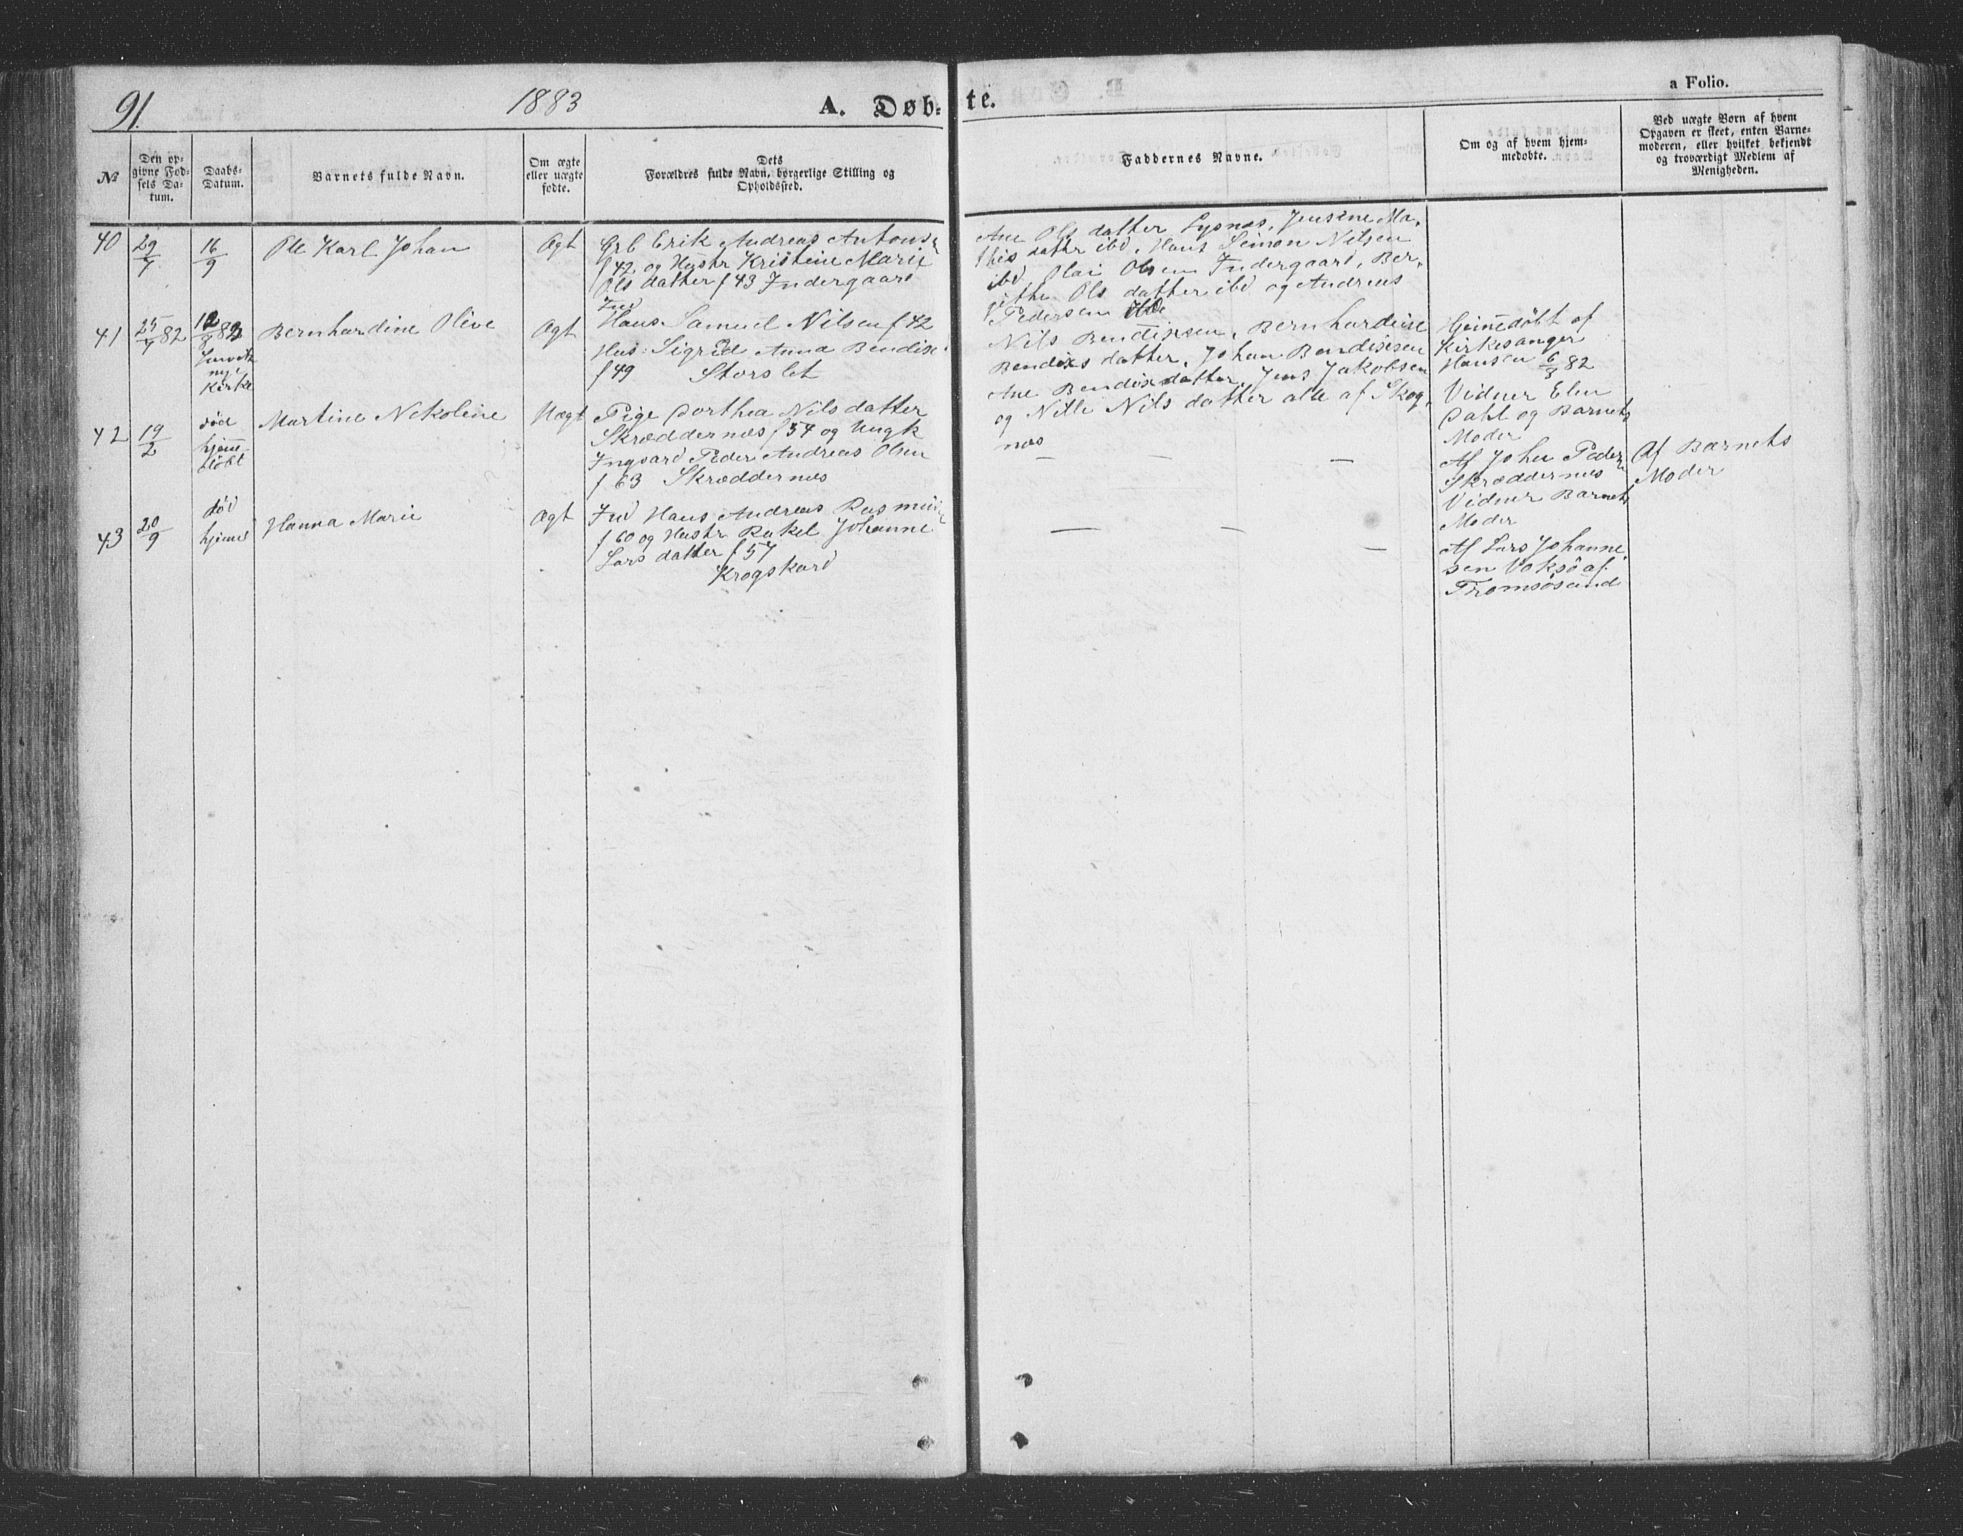 91.
1883
A. Døb-
te.
a Folio.
№
Den op-
givne Fød-
sels Da-
tum.
Daabs-
Datum.
Barnets fulde Navn.
Om ægte
eller uægte
fødte.
Dets
Forældres fulde Navn, borgerlige Stilling og
Opholdssted.
Faddernes Navne.
Om og af hvem hjem-
medøbte.
Ved uægte Børn af hvem
Opgaven er skeet, enten Barne-
moderen, eller hvilket bekjendt
og troværdigt Medlem af
Menigheden.
40
29/7
16/9
Ole Karl Johan
Ægt
Erik Andreas Antons.
f 42 og Hustr Kristine Marie
Ols datter f 43 Indergaard
Ane Ols datter Lysnæs, Jensine Ma-
this datter ibd, Hans Simon Nilsen
ibd Olai Olsen Indergaard, Ber-
githe Ols datter ibd og Andreas
Pedersen ibd
41
25/7 82
12/8 83
kirke
Bernhardine Olive
Ægt
Ind
Hans Samuel Nilsen f 42
Hus: Sigrid Anna Bendix.
f 49 Storslet
Nils Bendixsen, Bernhardine
Bendixs datter, Johan Bendixsen
Ane Bendixdatter, Jens Jakobsen
og Nille Nils datter alle af Skog-
næs
Hjemmedøbt af
Kirkesanger
Hansen 6/8 82
42
19/2
død
hjem-
døbt
Martine Nikoline
Uægt
Pige Dorthea Nils datter
Skræddernæs f 54 og Ungk
Ingvard Peder Andreas Olsen
f 63 Skræddernæs
— — —
Vidner Elen
Dahl og Barnets
Moder
Af Johan Peder
Skræddernæs
Af Barnets
Moder
43
20/9
død
hjemd
Hanna Marie
Ægt
Ind Hans Andreas Rasmus
f 60 og Hustr Rakel Johanne
Lars datter f 57
Krogskard
— — —
Vidner Barnets
Moder
Af Lars Johanne-
sen Vaksø af
Tromsøsund